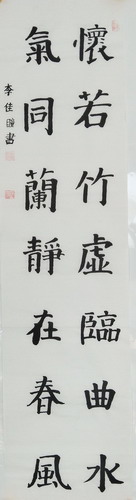 懷若竹虛臨曲水
氣同蘭靜在春風
李佳
書